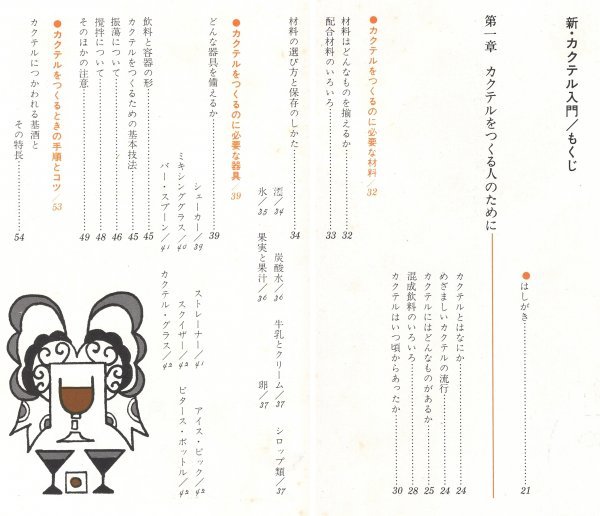 新・カクテル入門／もくじ
●はしがき 21
第一章 カクテルをつくる人のために
カクテルとはなにか 24
めざましいカクテルの流行 24
カクテルにはどんなものがあるか 25
混成飲料のいろいろ 28
カクテルはいつ頃からあったか 30
●カクテルをつくるのに必要な材料／32
材料はどんなものを揃えるか 32
配合材料のいろいろ 33
材料の選び方と保存のしかた 34
酒／34 炭酸水／36 牛乳とクリーム／37 シロップ類／37
氷／35 果実と果汁／36 卵／37
●カクテルをつくるのに必要な器具／39
どんな器具を備えるか 39
シェーカー／39 ストレーナー／41 アイス・ピック／42
ミキシンググラス／40 スクイザー／42 ビタース・ボットル／42
バー・スプーン／41 カクテル・グラス／42
飲料と容器の形 45
カクテルをつくるための基本技法 45
振蕩について 46
攪拌について 48
そのほかの注意 49
●カクテルをつくるときの手順とコツ／53
カクテルにつかわれる基酒と
その特長 54